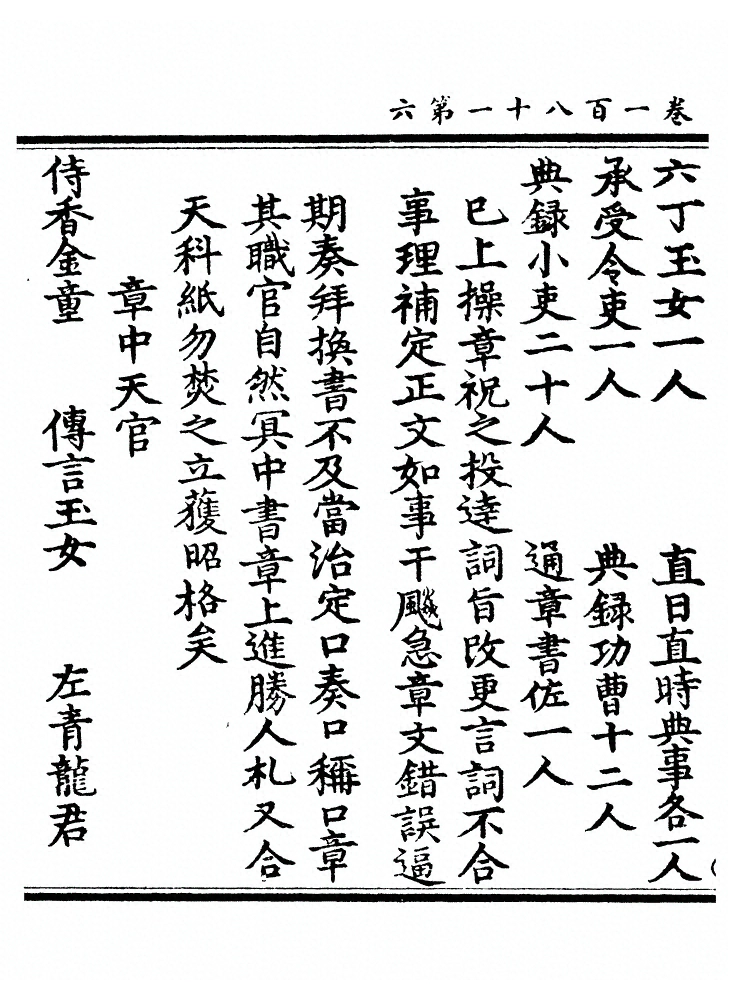 卷一百八十一第六
六丁玉女一人　直日直時典事各一人
承受令吏一人　典録功曹十二人
典録小吏二十人　通章書佐一人
巳上操章祝之投達詞旨改更言詞不合
事理補定正文如事干飈急章文錯誤逼
期奏拜換書不及當治定口奏口稱口章
其職官自然冥中書章上進勝人札又合
天科紙勿焚之立蒦昭格矣
章中天官
侍香金童　傳言玉女　左青龍君